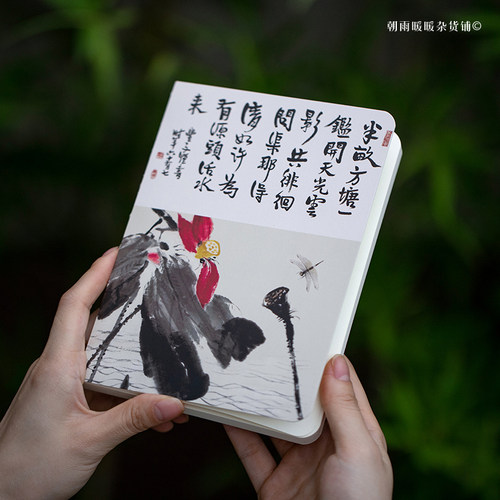 朝雨暖暖杂货铺©
半畝方塘一
鑑開天光雲
影共徘徊
問渠那得
清如許為
有源頭活水
来
豐子愷書